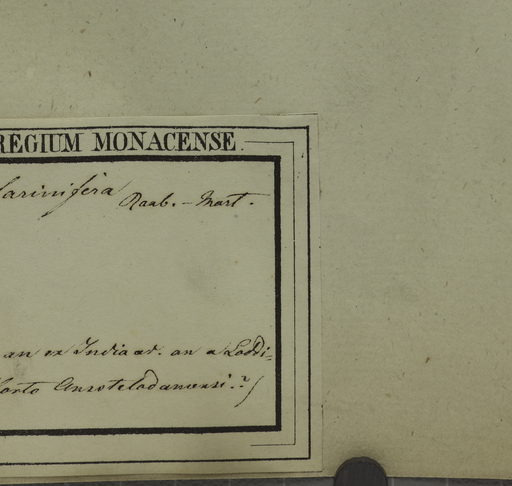 REGIUM MONACENSE.
farinifera Raab. - Mart.
an ex India or. an a Loddi=
Horto Amstelodamensi.?/